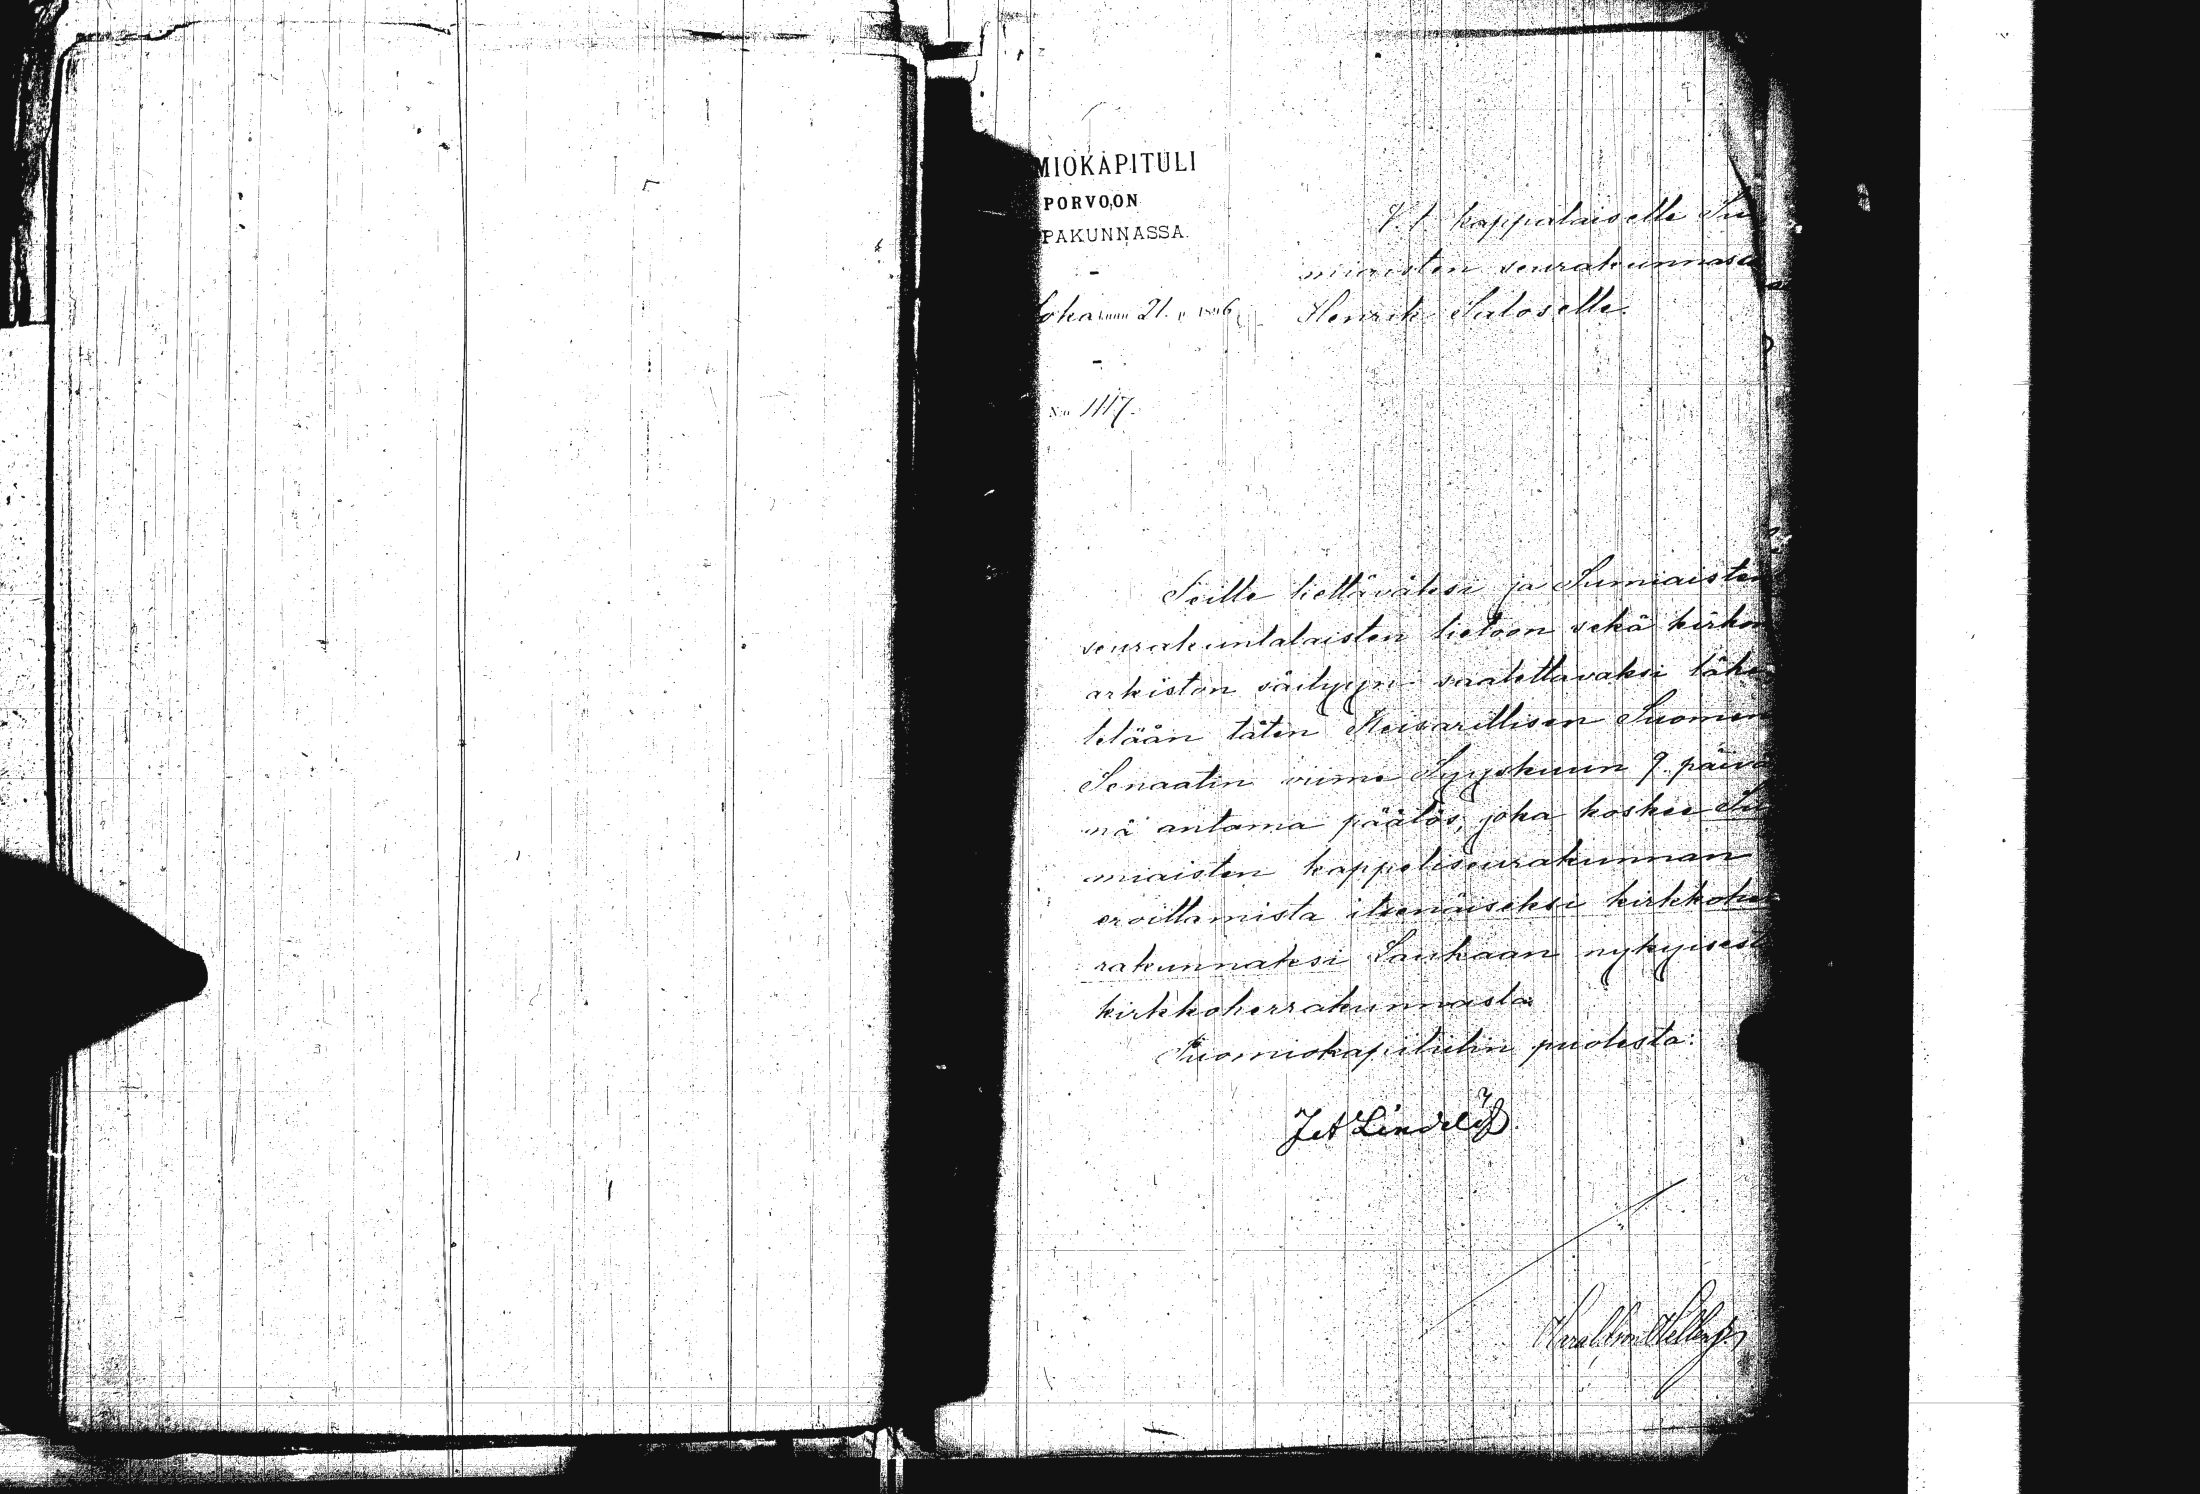 MIOKAPITULI
PORVOON
PAKUNNASSA.
V. t. kappalaiselle Su
miaisten seurakunnassa
Lokakuun 21. p. 1896.
Henrik Saloselle.
N:o 1117.
Teille tiettäväksi ja Sumiaisten
seurakuntalaisten tietoon sekä kirkon
arkiston säilyyn saatettavaksi lähe
tetään täten Keisarillisen Suomen
Senaatin viime Syyskuun 9. päivä
nä antama päätös, joka koskee Su
miaisten kappeliseurakunnan
eroittamista itsenäiseksi kirkkoher
rakunnaksi Laukaan nykyisest
kirkkoherrakunnasta.
Tuomiokapitulin puolesta:
Lindelöf